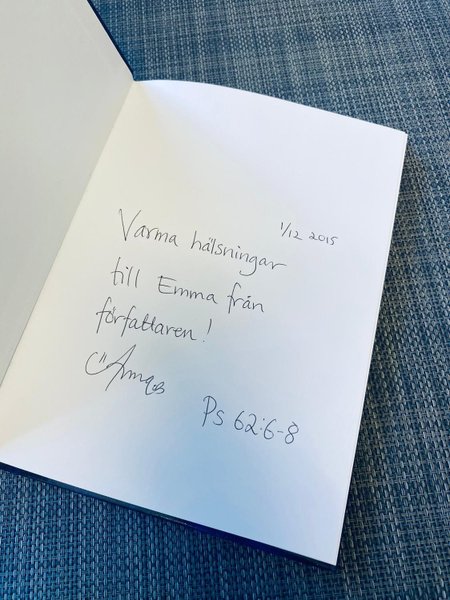 1/12 2015
Varma hälsningar
till Emma från
författaren!
Ps 62:6-8